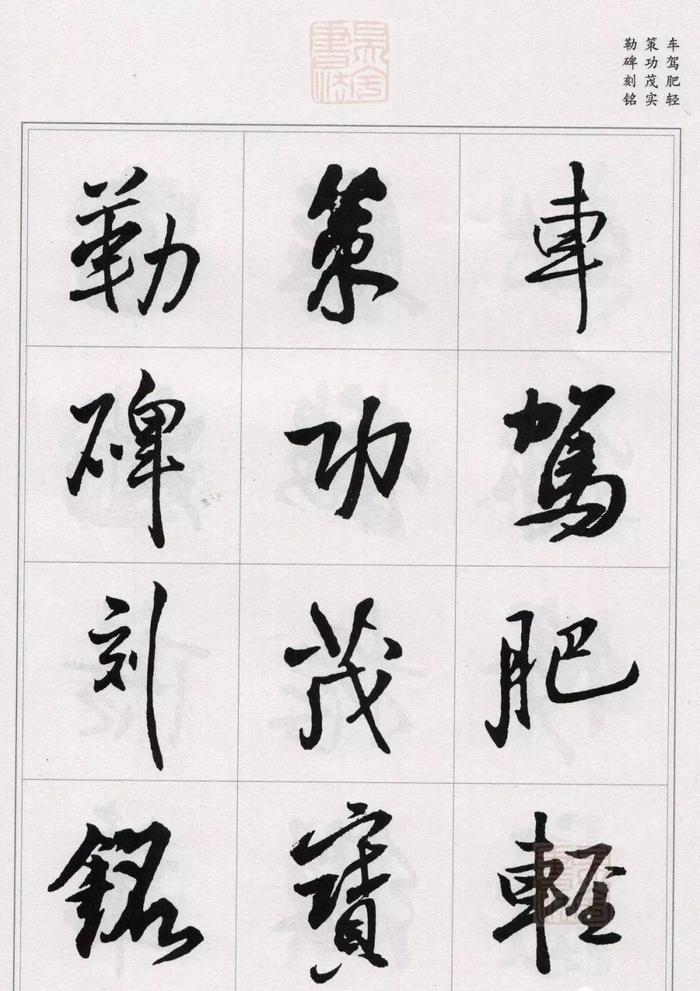 车驾肥轻
策功茂实
勒碑刻铭
車駕肥輕
策功茂實
勒碑刻銘